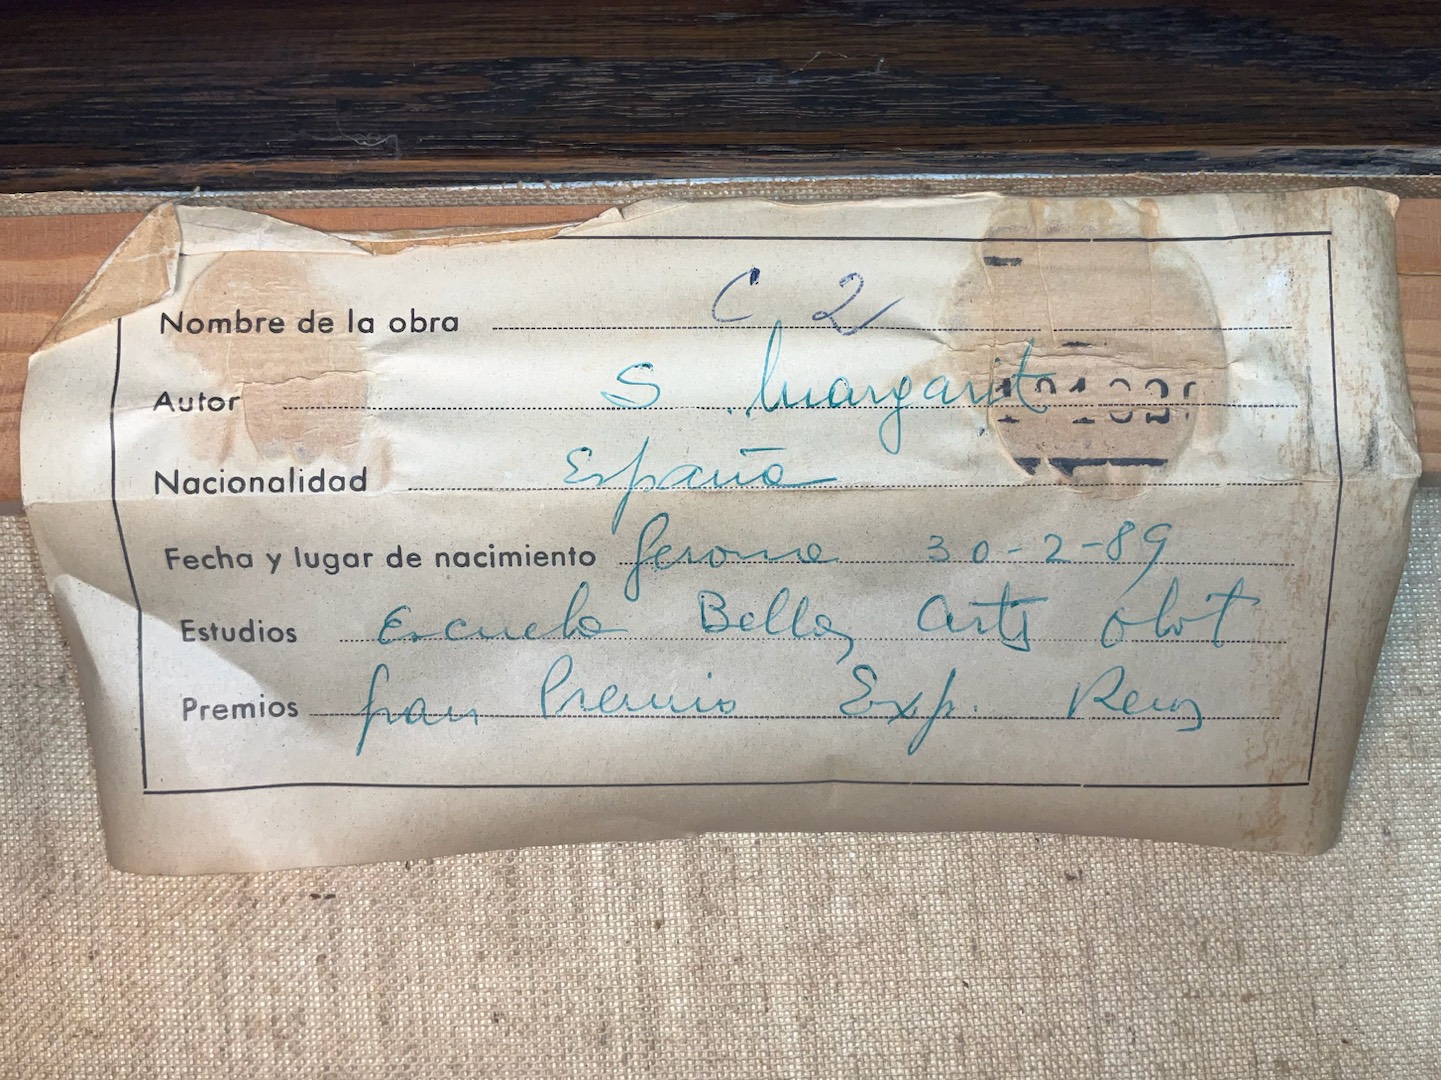 Nombre de la obra C 2
Autor S. Margarit
Nacionalidad España
Fecha y lugar de nacimiento Gerona 30-2-89
Estudios Escuela Bellas Arts Olot
Premios Gran Premio Exp. Reus